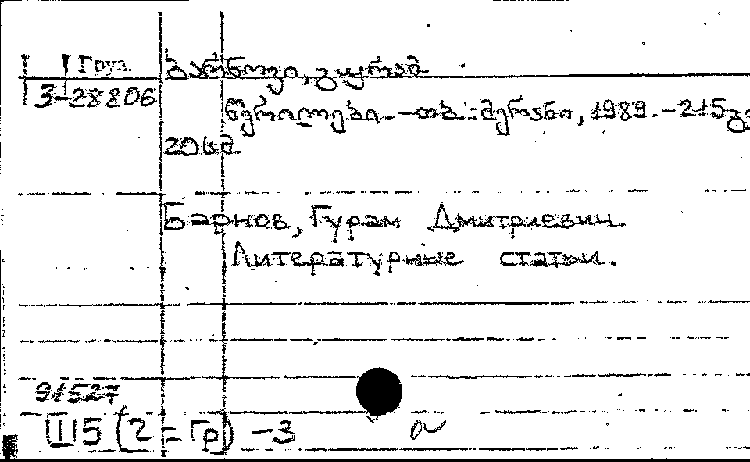 Груз. ბარნოვი, გურამ
3-28806
წერილები. -თბ.: მერანი, 1989. -215გვ
20სმ
Барнов, Гурам Дмитриевич.
Литературные статьи.
91527
Ш5(2=Гр) -3